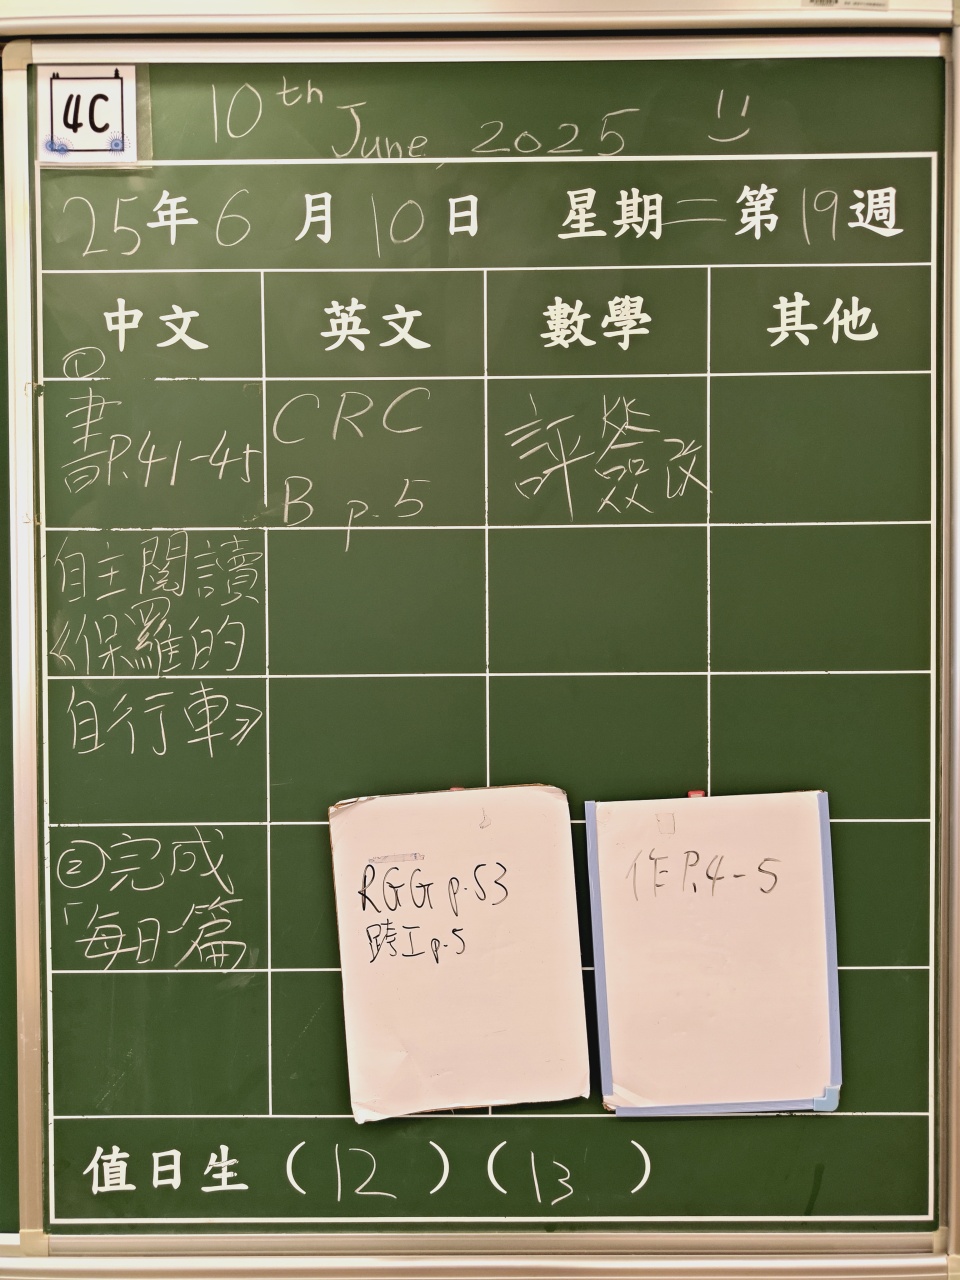 4C
10th June, 2025
25年6月10日 星期二第19週
中文 英文 數學 其他
①
書P.41-45
CRC
B p.5
評簽改
自主閱讀
《保羅的
自行車》
②完成
「每日一篇
RGG p.53
跨工 p.5
作P.4-5
值日生(12)(13)